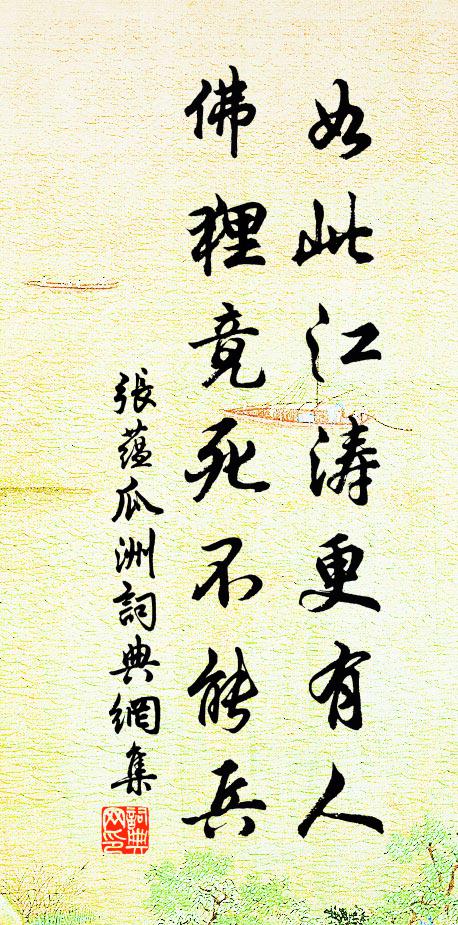 如此江涛更有人
佛狸竟死不能兵
張蕴瓜洲詞典網集
詞典網印